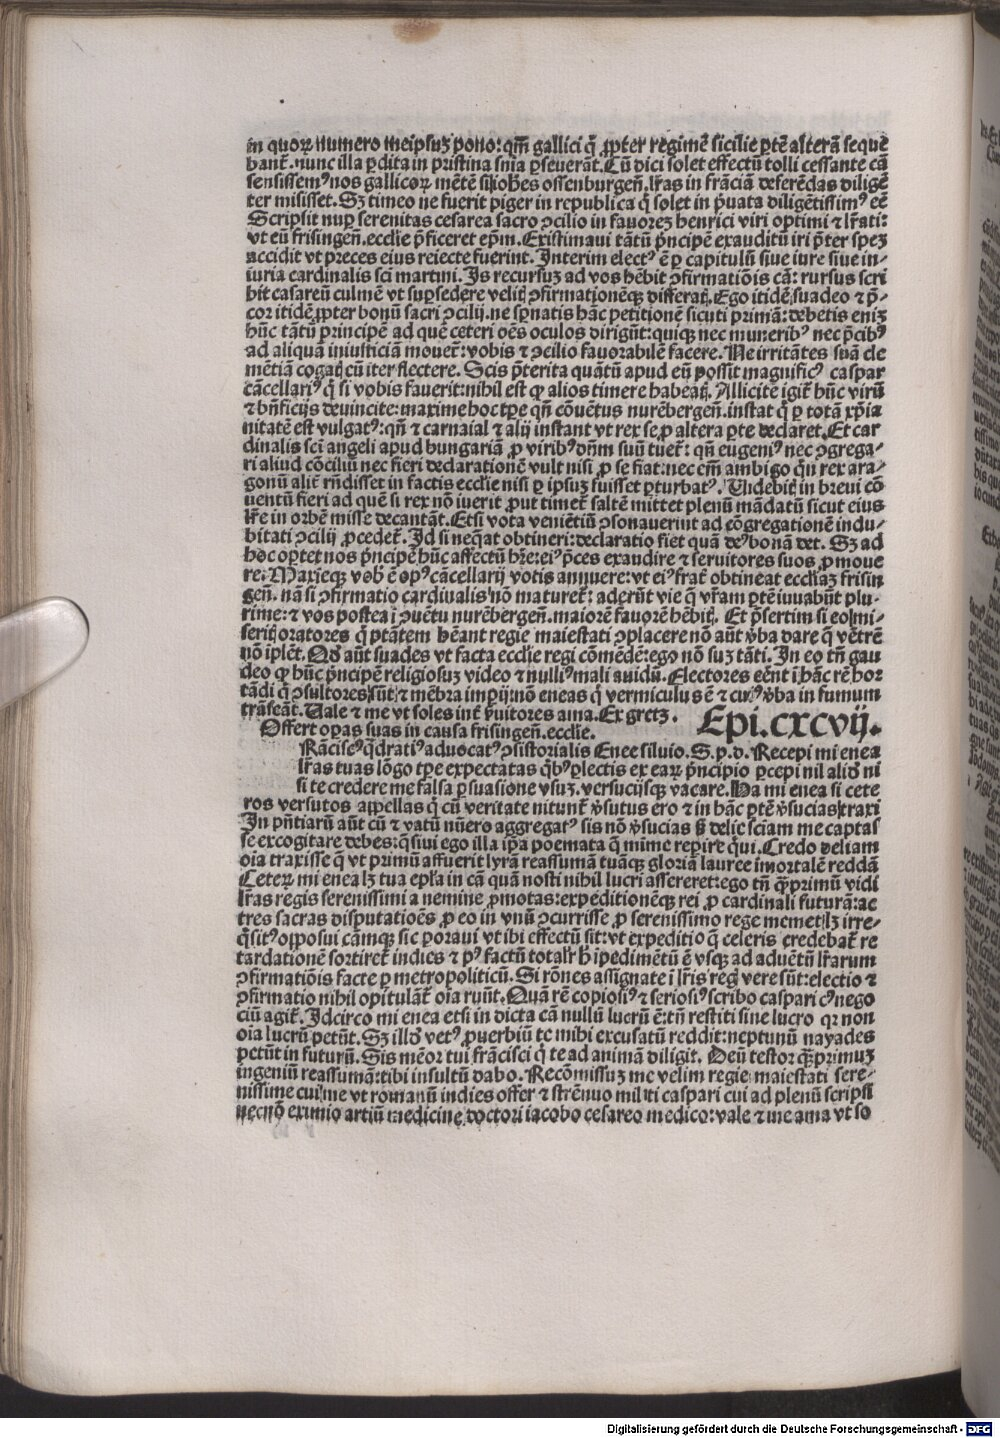 in quoꝝ numero meipsuꝫ pono: qm̄ gallici q̄ ꝓpter regimē sicilie ꝑtē alterā seque
bant̄. nunc illa ꝑdita in pristina sn̄ia ꝑseuerāt. Cū dici solet effectū tolli cessante cā
sensissemꝰ nos gallicoꝝ mētē si ioh̄es ossenburgen̄. lr̄as in frāciā deferēdas diligē
ter misisset. Sꝫ timeo ne fuerit piger in republica q̄ solet in p̄uata diligētissimꝰ eē
Scripsit nuꝑ serenitas cesarea sacro ꝯcilio in fauoreꝫ henrici viri optimi ⁊ lr̄ati:
vt eū frisingen̄. ecclīe p̄ficeret ep̄m. Existimaui tātū p̄ncipē exauditū iri p̄ter speꝫ
accidit vt preces eius reiecte fuerint. Interim electꝰ ē ꝑ capitulū siue iure siue in-
iuria cardinalis sc̄i martini. Is recursuꝫ ad vos hēbit ꝯfirmatiōis cā: rursus scri
bit casareū culmē vt suꝑsedere velitꝭ ꝯfirmationēqꝫ differatꝭ. Ego itidē suadeo ⁊ p̄-
cor itidē ꝓpter bonū sacri ꝯcilij. ne sp̄natis hāc petitionē sicuti primā: debetis eniꝫ
hūc tātū principē ad quē ceteri oēs oculos dirigūt: quiqꝫ nec muneribꝰ nec p̄cibꝰ
ad aliquā iniusticiā mouet̄: vobis ⁊ ꝯcilio fauorabilē facere. Ne irritātes suā cle
mētiā cogatꝭ cū iter flectere. Scis p̄terita quātū apud eū possit magnificꝰ caspar
cācellariꝰ q̄ si vobis fauerit: nihil est ꝙ alios timere habeatꝭ. Allicite igit̄ hūc virū
⁊ bn̄ficijs deuincite: maxime hoc tꝑe qn̄ cōuētus nurēbergen̄. instat q̄ ꝑ totā xp̄ia
nitatē est vulgatꝰ: qn̄ ⁊ carnaial ⁊ alij instant vt rex se ꝓ altera ꝑte declaret. Et car
dinalis sc̄i angeli apud bungariā ꝓ viribꝰ dn̄m suū tuet̄: qn̄ eugeniꝰ nec ꝯgrega-
ri aliud cōciliū nec fieri declarationē vult nisi ꝓ se fiat: nec em̄ ambigo q̄n rex ara-
gonū alit̄ rn̄disset in factis ecclīe nisi ꝑ ipsuꝫ fuisset ꝑturbatꝰ. Uidebitꝭ in breui cō
uentū fieri ad quē si rex nō iuerit ꝓut timet̄ saltē mittet plenū mādatū sicut eius
lr̄e in orbē misse decantāt. Etsi vota veniētiū ꝯsonauerint ad cōgregationē indu-
bitati ꝯcilij ꝓcedet̄. Id si neq̄at obtineri: declaratio fiet quā deꝰ bonā det. Sꝫ ad
hoc oꝑtet nos p̄ncipē hūc affectū hr̄e: eiꝰ p̄ces exaudire ⁊ seruitores suos ꝓmoue
re. Maxīeqꝫ vob̄ ē opꝰ cācellarij votis annuere: vt eiꝰ frat̄ obtineat eccliaꝫ frisin
gen̄. nā si ꝯfirmatio cardinalis nō maturet̄: aderūt vie q̄ vr̄am ꝑtē iuuabūt plu-
rime: ⁊ vos postea ī ꝯuētu nurēbergen̄. maiorē fauorē hēbitꝭ. Et p̄sertim si eo mi-
seritꝭ oratores q̄ ptātem hēant regie maiestati ꝯplacere nō aūt ꝟba dare q̄ vētrē
nō īplēt. Qd̄ aūt suades vt facta ecclīe regi cōmēdē: ego nō suꝫ tāti. In eo tn̄ gau
deo ꝙ hūc p̄ncipē religiosuꝫ video ⁊ nulliꝰ mali auidū. Electores eēnt ī hāc rē hor
tādi q̄ ꝯsultores sūt ⁊ mēbra imꝑij: nō eneas q̄ vermiculus ē ⁊ cuiꝰ ꝟba in fumum
trāseāt. Uale ⁊ me vt soles int̄ ꝟuitores ama. Ex gretz.
Epi. cxcvij.
Offert oꝑas suas in causa frisingen̄. ecclīe.
Rāciscꝰ q̄dratiꝰ aduocatꝰ ꝯsistorialis Enee siluio. S. p. d. Recepi mi enea
lr̄as tuas lōgo tꝑe expectatas q̄bꝰ ꝑlectis ex eaꝝ p̄ncipio ꝑcepi nil aliđ ni
si te credere me falsa ꝑsuasione vsuꝫ. versucijsqꝫ vacare. Na mi enea si cete
ros versutos appellas q̄ cū veritate nitunt̄ ꝟsutus ero ⁊ in hāc ꝑtē ꝟsucias traxi
In pn̄tiarū aūt cū ⁊ vatū nūero aggregatꝰ sis nō ꝟsucias sꝫ delie sciam me captas
se excogitare debes: q̄siui ego illa ip̄a poemata q̄ mīme reꝑire q̄ui. Credo deliam
oīa traxisse q̄ vt primū affuerit lyrā reassumā tuāqꝫ gloriā lauree īmortalē reddā
Ceteꝝ mi enea lꝫ tua epl̄a in cā quā nosti nihil lucri assereret: ego tn̄ q̄primū vidi
lr̄as regis serenissimi a nemine ꝓmotas: expeditionēqꝫ rei ꝓ cardinali futurā: ac
tres sacras disputatiōes ꝓ eo in vnū ꝯcurrisse ꝓ serenissimo rege memet lꝫ irre-
q̄sitꝰ opposui cāmqꝫ sic ꝑoraui vt ibi effectū sit: vt expeditio q̄ celeris credebat̄ re
tardationē sortiret̄ indies ⁊ pꝰ factū totalr̄ h̄ īpedimētū ē vsqꝫ ad aduētū lr̄arum
ꝯfirmatiōis facte ꝑ metropoliticū. Si rōnes assignate ī lr̄is regꝭ vere sūt: electio ⁊
ꝯfirmatio nihil opitulāt̄ oīa ruūt. Quā rē copiosiꝰ ⁊ seriosiꝰ scribo caspari cꝰ nego
ciū agit̄. Idcirco mi enea etsi in dicta cā nullū lucrū ē: tn̄ restiti sine lucro qꝛ non
oīa lucrū petūt. Sꝫ illđ vetꝰ ꝓuerbiū te mihi excusatū reddit: neptunū nayades
petūt in futurū. Sis mēor tui frācisci q̄ te ad animā diligit. Deū testor q̄primuꝫ
ingeniū reassumā: tibi insultū dabo. Recōmissuꝫ me velim regie maiestati sere-
nissime cui me vt romanū indies offer ⁊ strēnuo militi caspari cui ad plenū scripsi
necnō eximio artiū medicine doctori iacobo cesareo medico: vale ⁊ me ama vt so
Digitalisierung gefördert durch die Deutsche Forschungsgemeinschaft - DFG